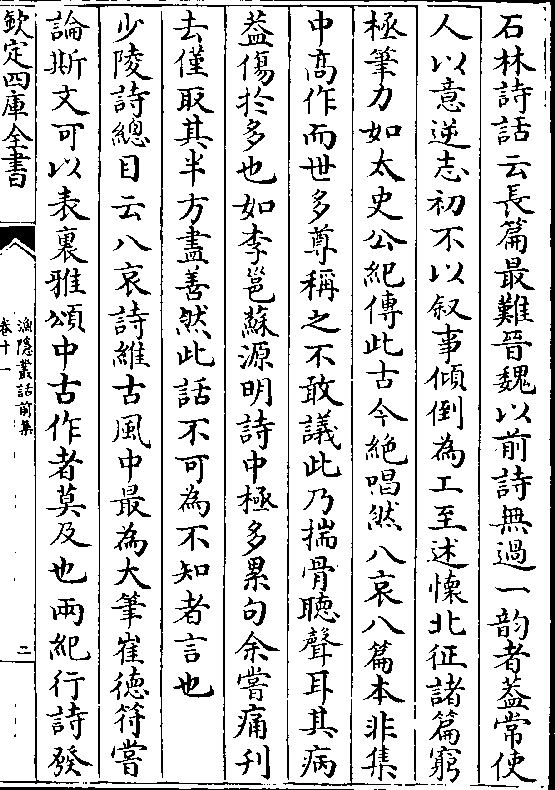 石林詩話云長篇最難晉魏以前詩無過一韵者葢常使
人以意逆志初不以叙事傾倒為工至述懷北征諸篇窮
極筆力如太史公紀傳此古今絶唱然八哀八篇本非集
中髙作而世多尊稱之不敢議此乃揣骨聽聲耳其病
葢傷於多也如李邕蘇源明詩中極多累句余嘗痛刋
去僅取其半方盡善然此話不可為不知者言也
少陵詩總目云八哀詩維古風中最為大筆崔徳符嘗
論斯文可以表裏雅頌中古作者莫及也兩紀行詩發
欽定四庫全書
漁隱叢話前集
卷十一
二